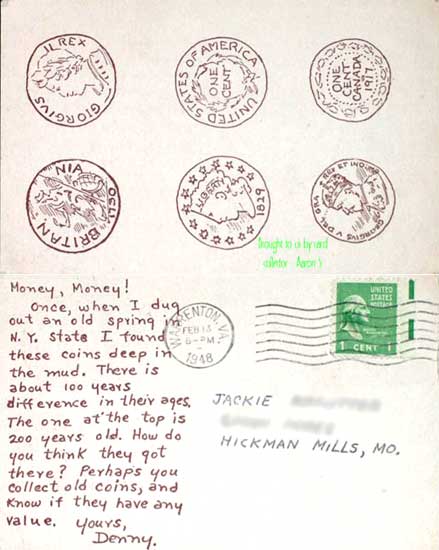 GIORGIVS II REX
UNITED STATES OF AMERICA
ONE
CENT
ONE
CENT
CANADA
1917
BRITAN NIA
LIBERTY
1826
GEORGIVS V DEI GRA
REX ET IND IMP
Brought to us by card
collector - Aaron Y
Money, Money!
Once, when I dug
out an old spring in
N.Y. State I found
these coins deep in
the mud. There is
about 100 years
difference in their ages.
The one at the top is
200 years old. How do
you think they got
there? Perhaps you
collect old coins, and
know if they have any
value. Yours,
Denny.
WARRENTON, VA.
FEB 13
6-PM
1948
UNITED
STATES
POSTAGE
1 CENT 1
JACKIE
HICKMAN MILLS, MO.